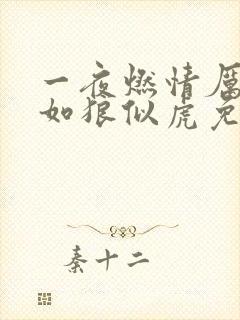 一夜燃情厉
如狼似虎免
秦十二